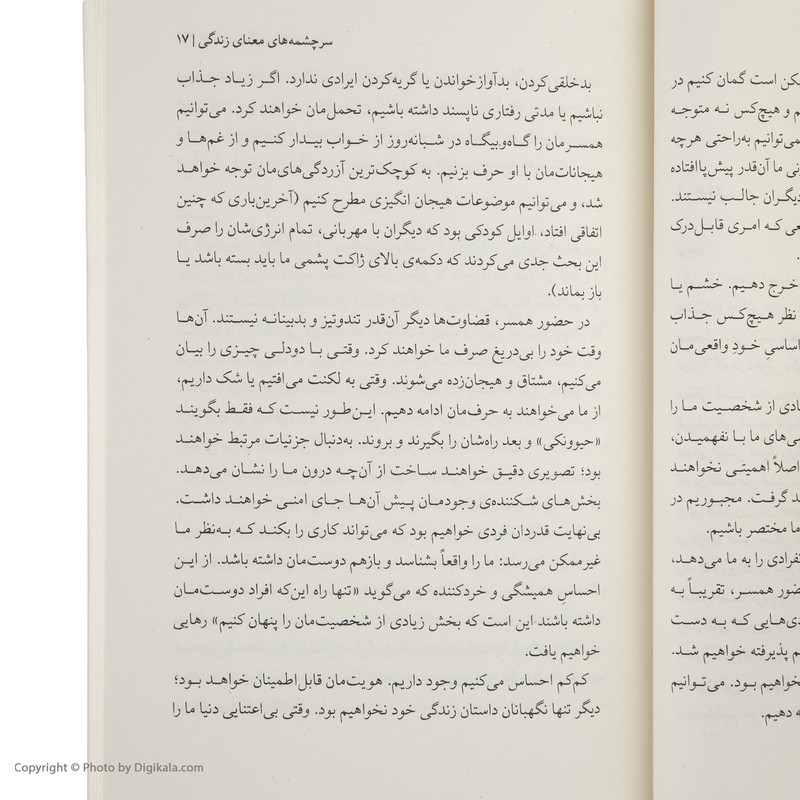 کن است گمان کنیم در
م و هیچ‌کس نه متوجه
می‌توانیم به‌راحتی هرچه
نی ما آن‌قدر پیش‌پاافتاده
دیگران جالب نیستند.
عی که امری قابل‌درک
خرج دهیم. خشم یا
نظر هیچ‌کس جذاب
اساسیِ خودِ واقعی‌مان
ادی از شخصیت ما را
ی‌های ما با نفهمیدن،
اصلاً اهمیتی نخواهند
د گرفت. مجبوریم در
ما مختصر باشیم.
نفرادی را به ما می‌دهد،
ضور همسر، تقریباً به
دی‌هایی که به دست
م پذیرفته خواهیم شد.
خواهیم بود. می‌توانیم
ه دهیم.
سرچشمه‌های معنای زندگی | ۱۷
بدخلقی‌کردن، بدآوازخواندن یا گریه‌کردن ایرادی ندارد. اگر زیاد جذاب
نباشیم یا مدتی رفتاری ناپسند داشته باشیم، تحمل‌مان خواهند کرد. می‌توانیم
همسرمان را گاه‌وبیگاه در شبانه‌روز از خواب بیدار کنیم و از غم‌ها و
هیجانات‌مان با او حرف بزنیم. به کوچک‌ترین آزردگی‌های‌مان توجه خواهد
شد، و می‌توانیم موضوعات هیجان انگیزی مطرح کنیم (آخرین‌باری که چنین
اتفاقی افتاد، اوایل کودکی بود که دیگران با مهربانی، تمام انرژی‌شان را صرف
این بحث جدی می‌کردند که دکمه‌ی بالای ژاکت پشمی ما باید بسته باشد یا
باز بماند).
در حضور همسر، قضاوت‌ها دیگر آن‌قدر تندوتیز و بدبینانه نیستند. آن‌ها
وقت خود را بی‌دریغ صرف ما خواهند کرد. وقتی با دودلی چیزی را بیان
می‌کنیم، مشتاق و هیجان‌زده می‌شوند. وقتی به لکنت می‌افتیم یا شک داریم،
از ما می‌خواهند به حرف‌مان ادامه دهیم. این‌طور نیست که فقط بگویند
«حیوونکی» و بعد راه‌شان را بگیرند و بروند. به‌دنبال جزئیات مرتبط خواهند
بود؛ تصویری دقیق خواهند ساخت از آن‌چه درون ما را نشان می‌دهد.
بخش‌های شکننده‌ی وجودمان پیش آن‌ها جای امنی خواهند داشت.
بی‌نهایت قدردان فردی خواهیم بود که می‌تواند کاری را بکند که به‌نظر ما
غیرممکن می‌رسد: ما را واقعاً بشناسد و بازهم دوست‌مان داشته باشد. از این
احساسِ همیشگی و خردکننده که می‌گوید «تنها راه این‌که افراد دوست‌مان
داشته باشند این است که بخش زیادی از شخصیت‌مان را پنهان کنیم» رهایی
خواهیم یافت.
کم‌کم احساس می‌کنیم وجود داریم. هویت‌مان قابل‌اطمینان خواهد بود؛
دیگر تنها نگهبانان داستان زندگی خود نخواهیم بود. وقتی بی‌اعتنایی دنیا ما را
Copyright © Photo by Digikala.com